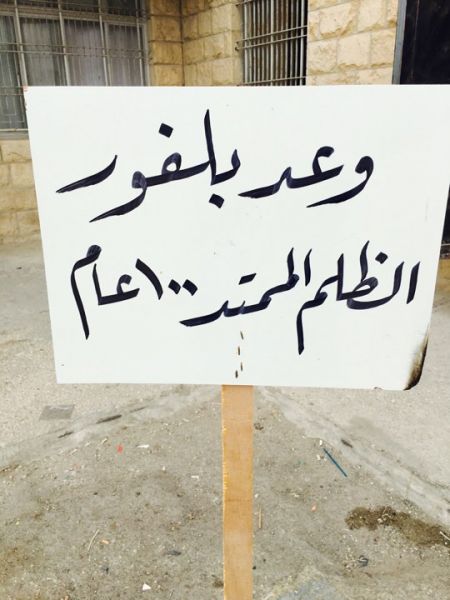 وعد بلفور
الظلم الممتد ١٠٠ عام